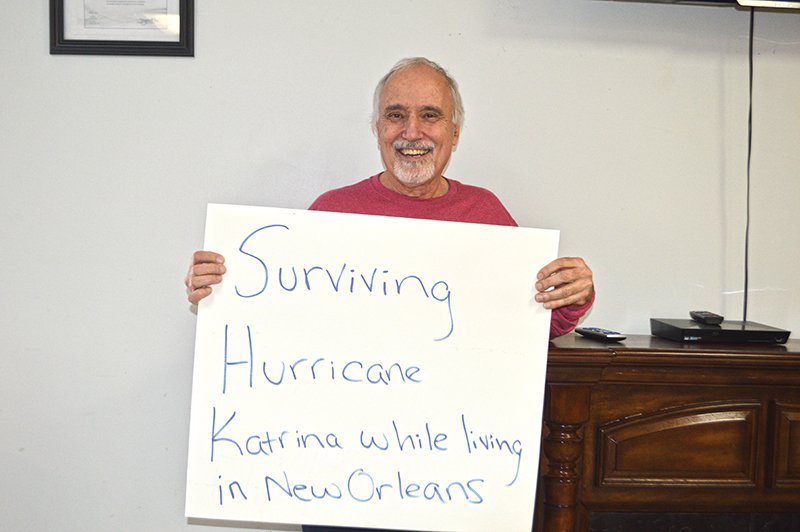 Surviving
Hurricane
Katrina while living
in New Orleans